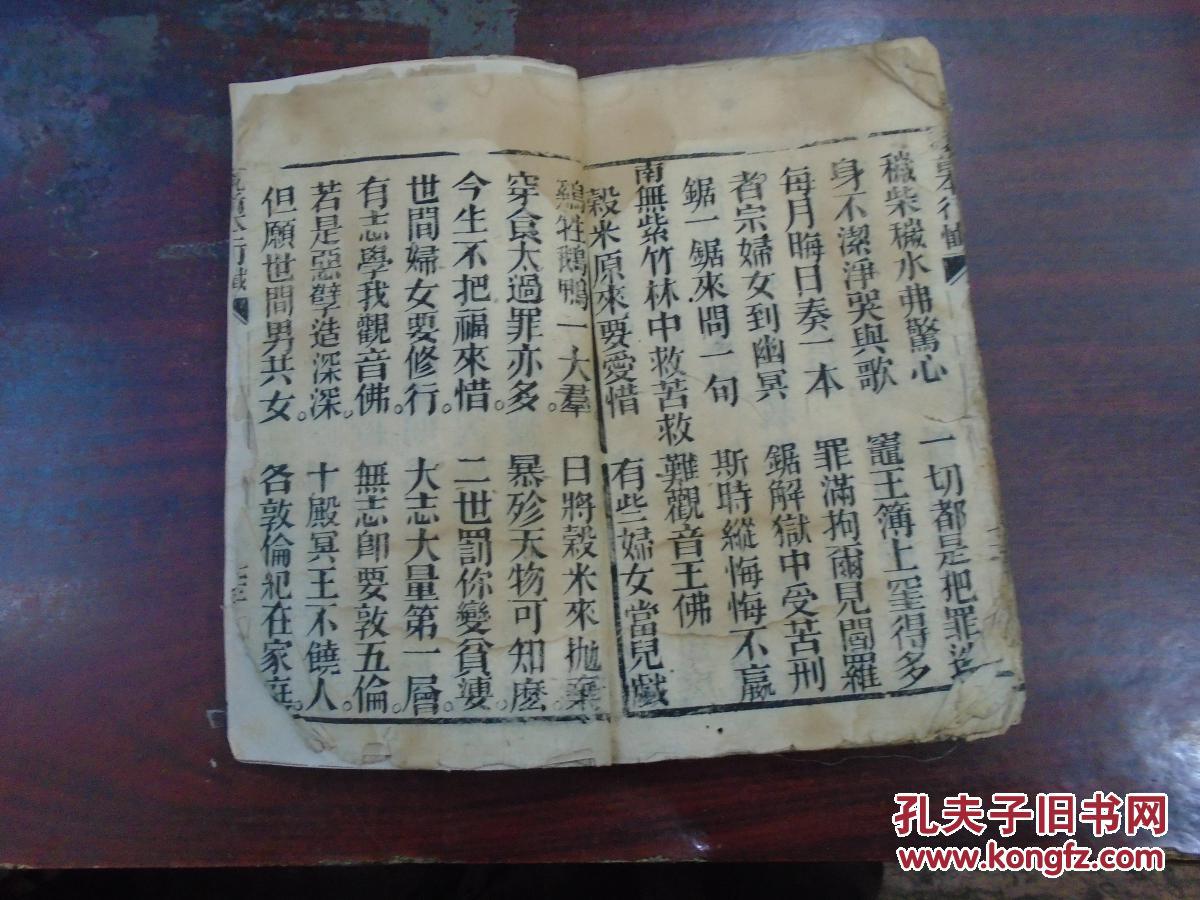 穢柴穢水弗驚心 一切都是把罪
身不潔淨哭與歌 竈王簿上窐得多
每月晦日奏一本 罪滿拘爾見閻羅
者宗婦女到幽冥 鋸解獄中受苦刑
鋸一鋸來問一句 斯時縱悔悔不嬴
南無紫竹林中救苦救難觀音王佛
穀米原來要愛惜 有些婦女當兒戲
鷄牲鵝鴨一大羣。 日將穀米來抛棄。
穿食太過罪亦多。 暴殄天物可知麽。
今生不把福來惜。 二世罰你變貧婕。
世間婦女要修行。 大志大量第一層。
有志學我觀音佛。 無志即要敦五倫。
若是惡孽造深深。 十殿冥王不饒人。
但願世間男共女。 各敦倫紀在家庭。
孔夫子旧书网
www.kongfz.com